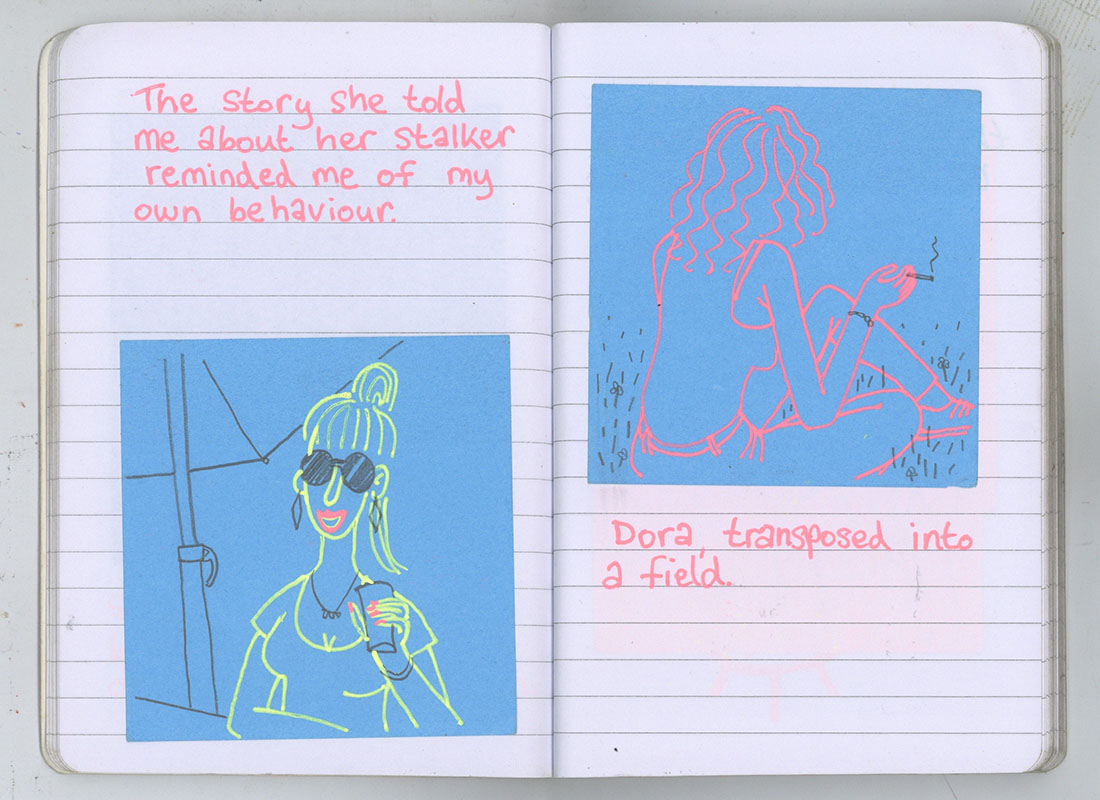 The story she told
me about her stalker
reminded me of my
own behaviour.
Dora, transposed into
a field.